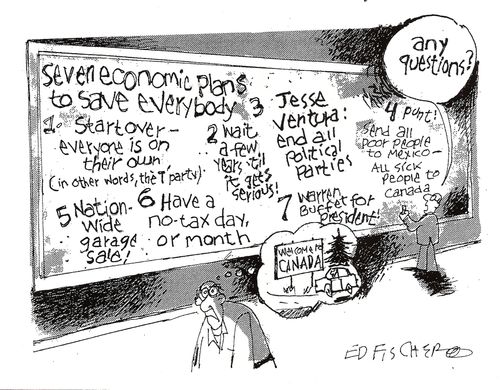 any
questions?
seven economic plans
to save everybody
1. Start over -
everyone is on
their own
(in other words, the "T" party)
2 Wait
a few
years 'til
it gets
serious!
3 Jesse
Ventura:
end all
Political
Parties
4 punt!
Send all
poor people
to Mexico -
All sick
people to
Canada
5 Nation-
wide
garage
sale!
6 Have a
no-tax day,
or month
7 Warren
Buffet for
president!
Welcome to
CANADA
ED FISCHER